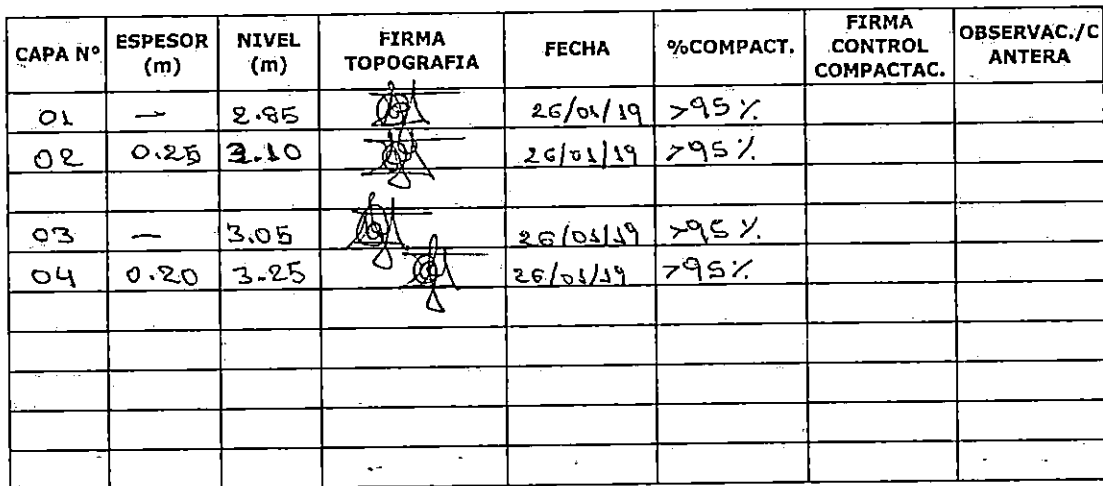 CAPA Nº ESPESOR (m) NIVEL (m) FIRMA TOPOGRAFIA FECHA %COMPACT. FIRMA CONTROL COMPACTAC. OBSERVAC./CANTERA
01 — 2.85 26/01/19 >95%
02 0.25 3.10 26/01/19 >95%
03 — 3.05 26/01/19 >95%
04 0.20 3.25 26/01/19 >95%